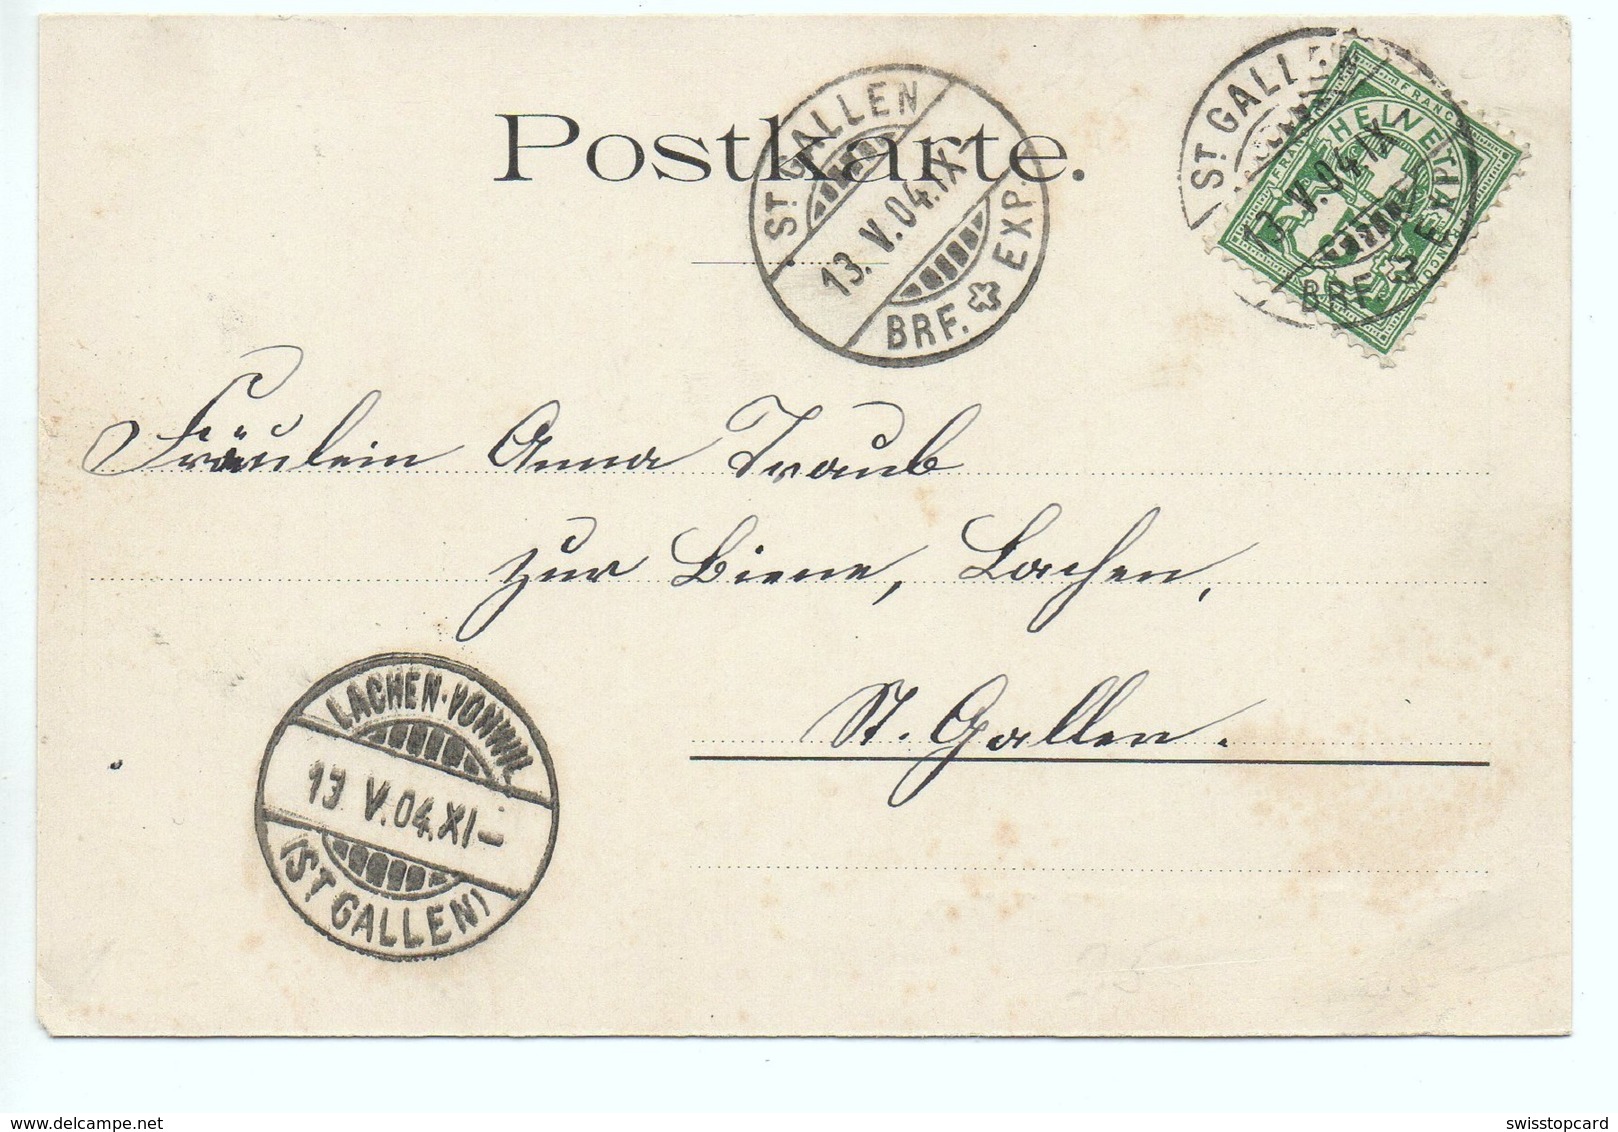 Postkarte.
ST. GALLEN
13. V. 04. IX-
BRF. EXP.
ST. GALLEN
13. V. 04 IX
BRF.
FRANCO
HELVETIA
Fräulein Anna Traub
zur Biene, Lachen,
St. Gallen.
LACHEN-VONWIL
13 V. 04. XI-
(ST. GALLEN)
www.delcampe.net
swisstopcard